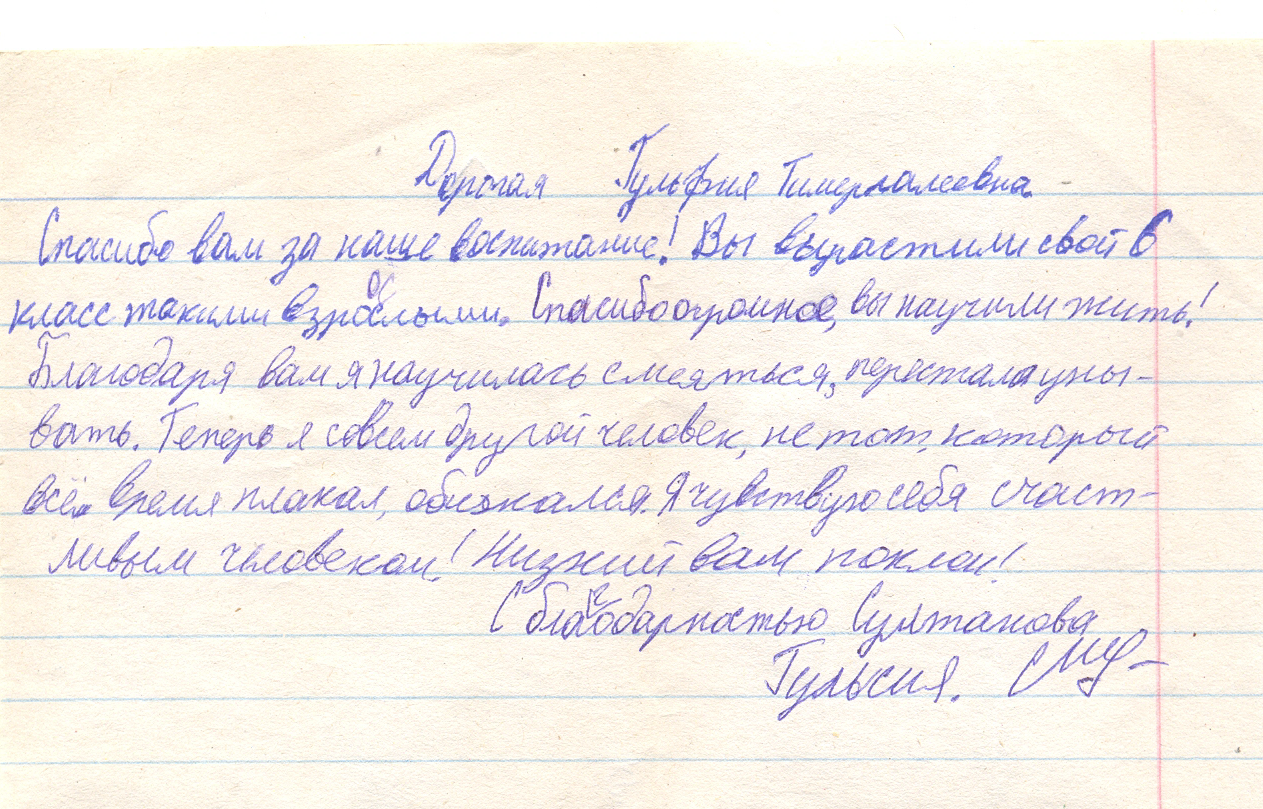 Дорогая Гульфия Тимергалеевна
Спасибо вам за наше воспитание! Вы вырастили свой 6
класс такими взрослыми. Спасибо огромное, вы научили жить!
Благодаря вам я научилась смеяться, перестала уны-
вать. Теперь я совсем другой человек, не тот, который
всё время плакал, обижался. Я чувствую себя счаст-
ливым человеком! Низкий вам поклон!
С благодарностью Султанова
Гульсия.